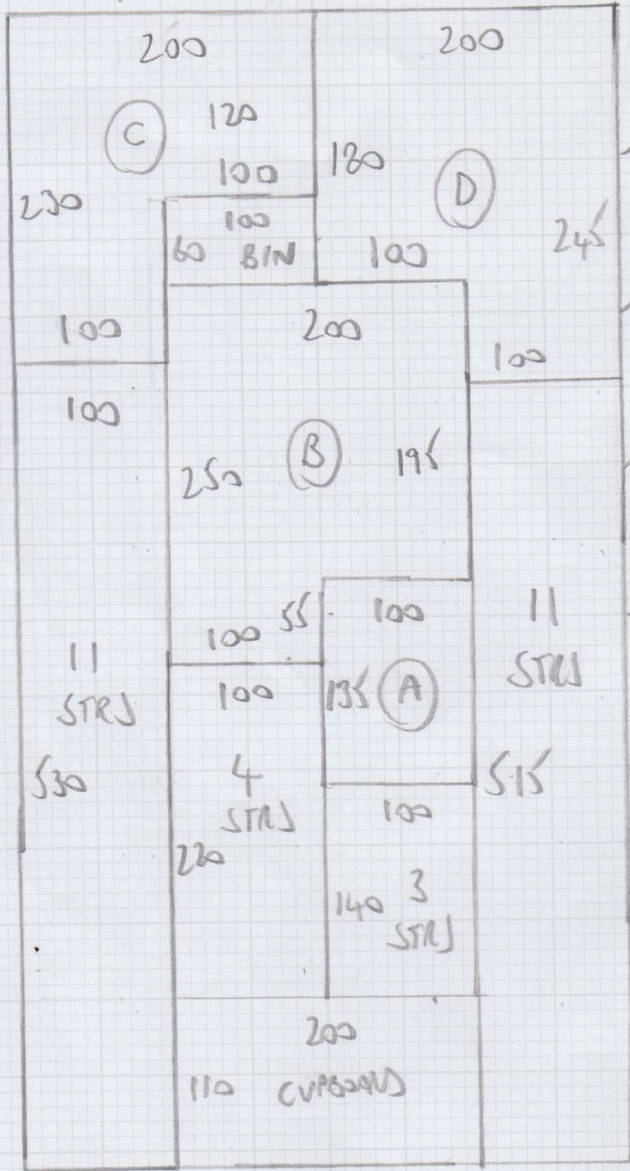 200
200
C
120
100
180
D
230
60
100
BIN
100
245
100
200
100
100
250
B
195
55
100
100
11
STRS
100
135
A
11
STRS
530
4
STRS
220
100
515
140
3
STRS
200
110
CUPBOARD